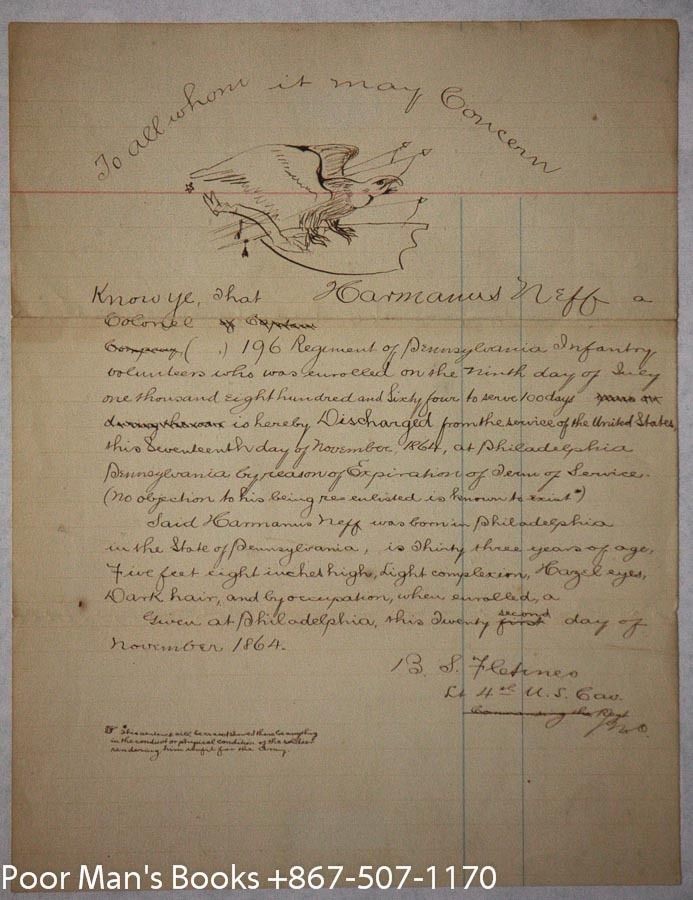 To all whom it may Concern
Know ye, That Harmanus Neff a
Colonel of Captain
Company ( .) 196 Regiment of Pennsylvania Infantry
volunteers who was enrolled on the ninth day of July
one thousand Eight hundred and Sixty four to serve 100 days years or
during the war is hereby Discharged from the service of the United States,
this Seventeenth day of November, 1864, at Philadelphia
Pennsylvania by reason of Expiration of Term of Service.
(No objection to his being re enlisted is known to exist*)
Said Harmanus Neff was born in Philadelphia
in the State of Pennsylvania, is Thirty three years of age,
Five feet eight inches high, Light complexion, Hazel eyes,
Dark hair, and by occupation, when enrolled, a
Given at Philadelphia, this Twenty first second day of
November 1864.
B. S.
Lt 4th U.S. Cav.
Commanding the Regt
*This sentence will be erased should there be anything
in the conduct or physical condition of the soldier
rendering him unfit for the Army.
Poor Man's Books +867-507-1170